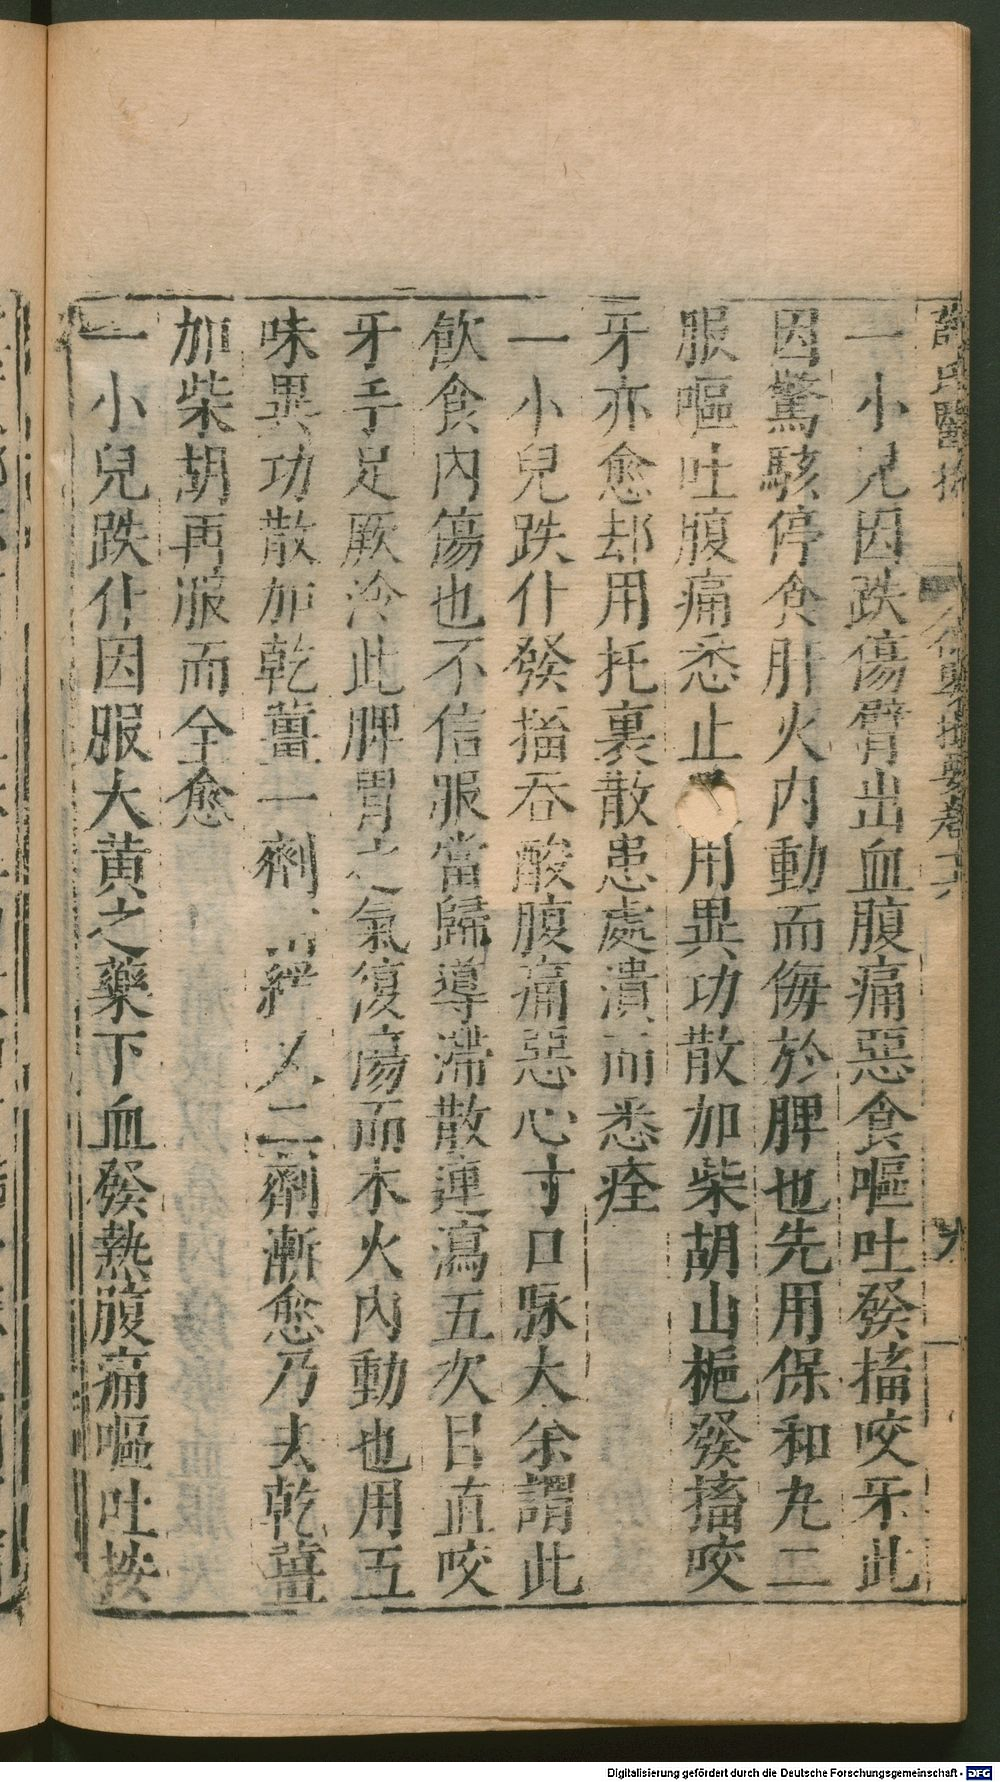 薛氏醫按
保嬰撮要卷十六
九
一小兒因跌傷臂出血腹痛惡食嘔吐發搐咬牙此
因驚駭停食肝火内動而侮於脾也先用保和丸二
服嘔吐腹痛悉止 用異功散加柴胡山梔發搐咬
牙亦愈却用托裏散患處潰而悉痊
一小兒跌仆發搐吞酸腹痛惡心寸口脉大余謂此
飲食内傷也不信服當歸導滯散連瀉五次目直咬
牙手足厥冷此脾胃之氣復傷而木火内動也用五
味異功散加乾薑一劑 二劑漸愈乃去乾薑
加柴胡再服而全愈
一小兒跌仆因服大黄之藥下血發熱腹痛嘔吐按
Digitalisierung gefördert durch die Deutsche Forschungsgemeinschaft - DFG